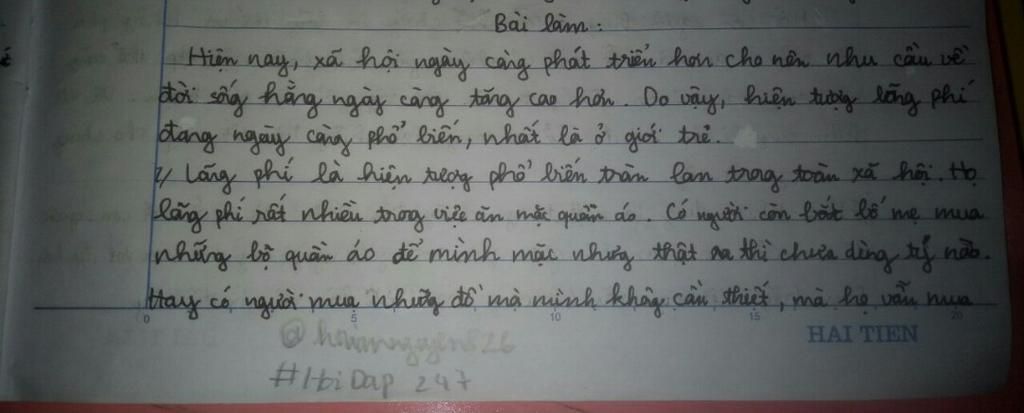 Bài làm:
Hiện nay, xã hội ngày càng phát triển hơn cho nên nhu cầu về
đời sống hằng ngày càng tăng cao hơn. Do vậy, hiện tượng lãng phí
đang ngày càng phổ biến, nhất là ở giới trẻ.
1/ Lãng phí là hiện tượng phổ biến tràn lan trong toàn xã hội. Họ
lãng phí rất nhiều trong việc ăn mặc quần áo. Có người còn bắt bố mẹ mua
những bộ quần áo để mình mặc nhưng thật ra thì chưa dùng tý nào.
Hay có người mua những đồ mà mình không cần thiết, mà họ vẫn mua
0 5 10 15 20
HAI TIEN
#HoiDap 247